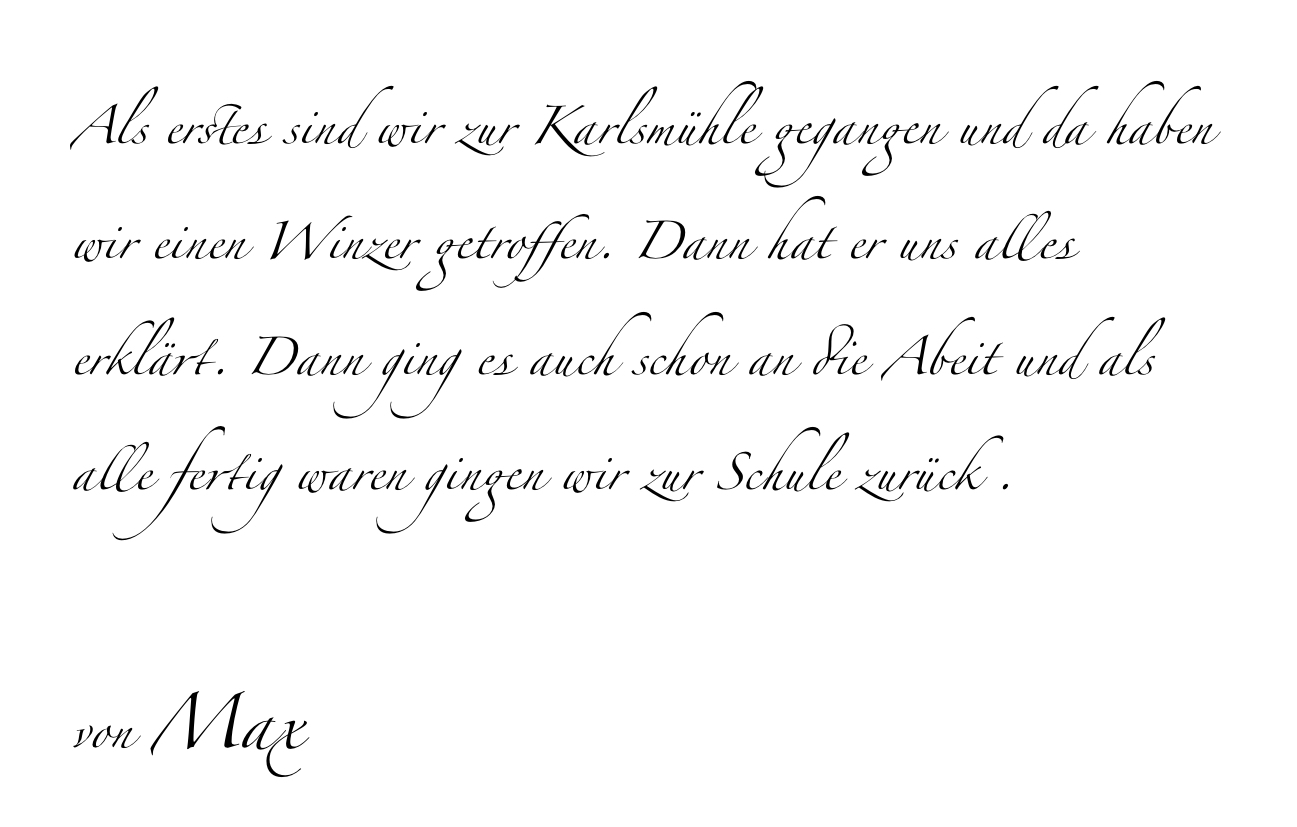 Als erstes sind wir zur Karlsmühle gegangen und da haben
wir einen Winzer getroffen. Dann hat er uns alles
erklärt. Dann ging es auch schon an die Abeit und als
alle fertig waren gingen wir zur Schule zurück .
von Max